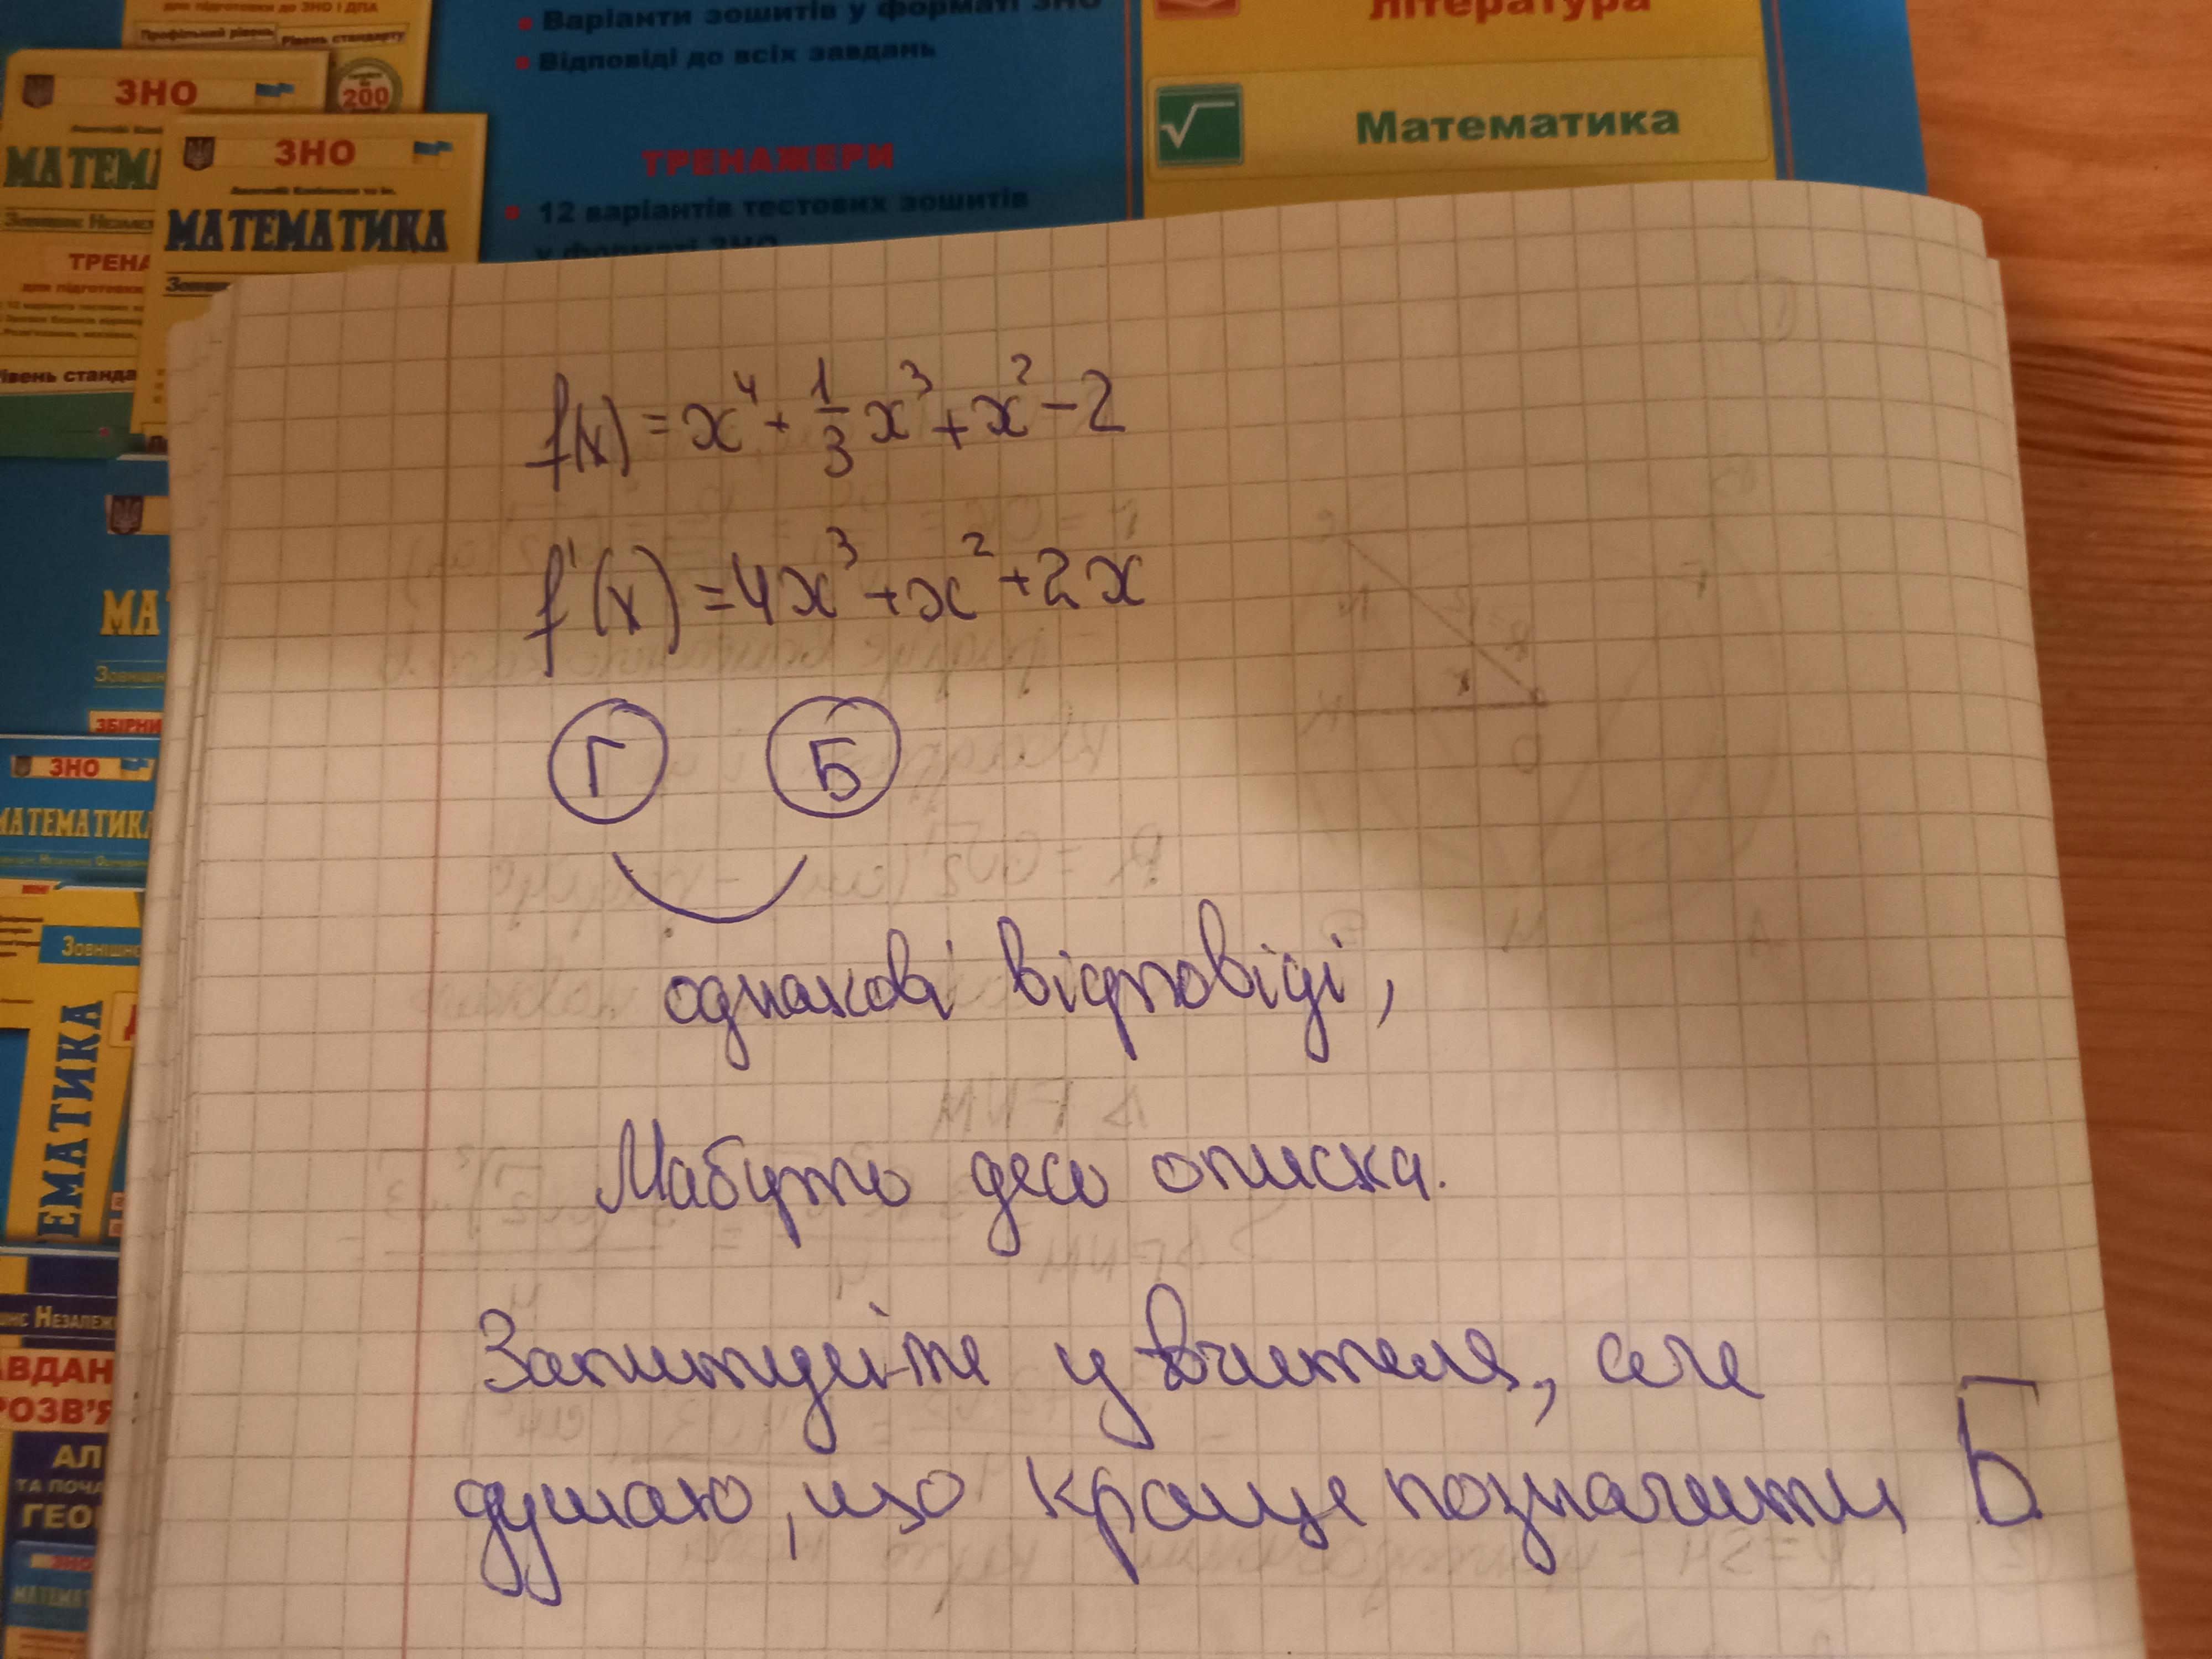 для підготовки до ЗНО і ДПА
Профільний рівень Рівень стандарту
200
ЗНО
ЗНО
МАТЕМА
МАТЕМАТИКА
ТРЕНА
для підготовки
івень станда
Варіанти зошитів у форматі ЗНО
Відповіді до всіх завдань
ТРЕНАЖЕРИ
12 варіантів тестових зошитів
у форматі ЗНО
література
Математика
МА
ЗБІРНИ
ЗНО
МАТЕМАТИК
Зовнішнє
ЕМАТИКА
НЕЗАЛЕЖ
АВДАН
РОЗВ'Я
АЛ
ТА ПОЧА
ГЕО
f(x) = x⁴ + 1/3 x³ + x² - 2
f'(x) = 4x³ + x² + 2x
Г Б
однакові відповіді,
Мабуть десь описка.
Запитуйте у вчителя, але
думаю, що краще позначити Б